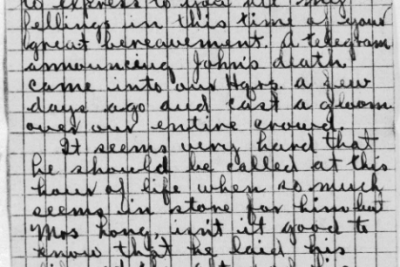 to express to you all my
fellings in this time of your
great bereavement. A telegram
announcing John's death
came into our Hqrs. a few
days ago and cast a gloom
over our entire crowd.
It seems very hard that
he should be called at this
hour of life when so much
seems in store for him but
Mrs Long, isn't it good to
know that he laid his